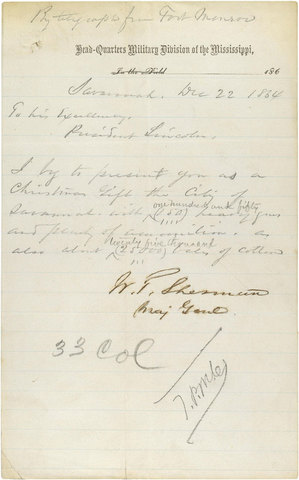 By telegraph from Fort Monroe
Head-Quarters Military Division of the Mississippi,
In the Field 186
Savannah, Dec 22 1864
To his Excellency,
President Lincoln,
I beg to present you as a
Christmas Gift the City of
one hundred and fifty
Savannah with (150) heavy guns
and plenty of ammunition, &
twenty five thousand
also about (25,000) bales of cotton
W. T. Sherman
Maj Genl
33 Col